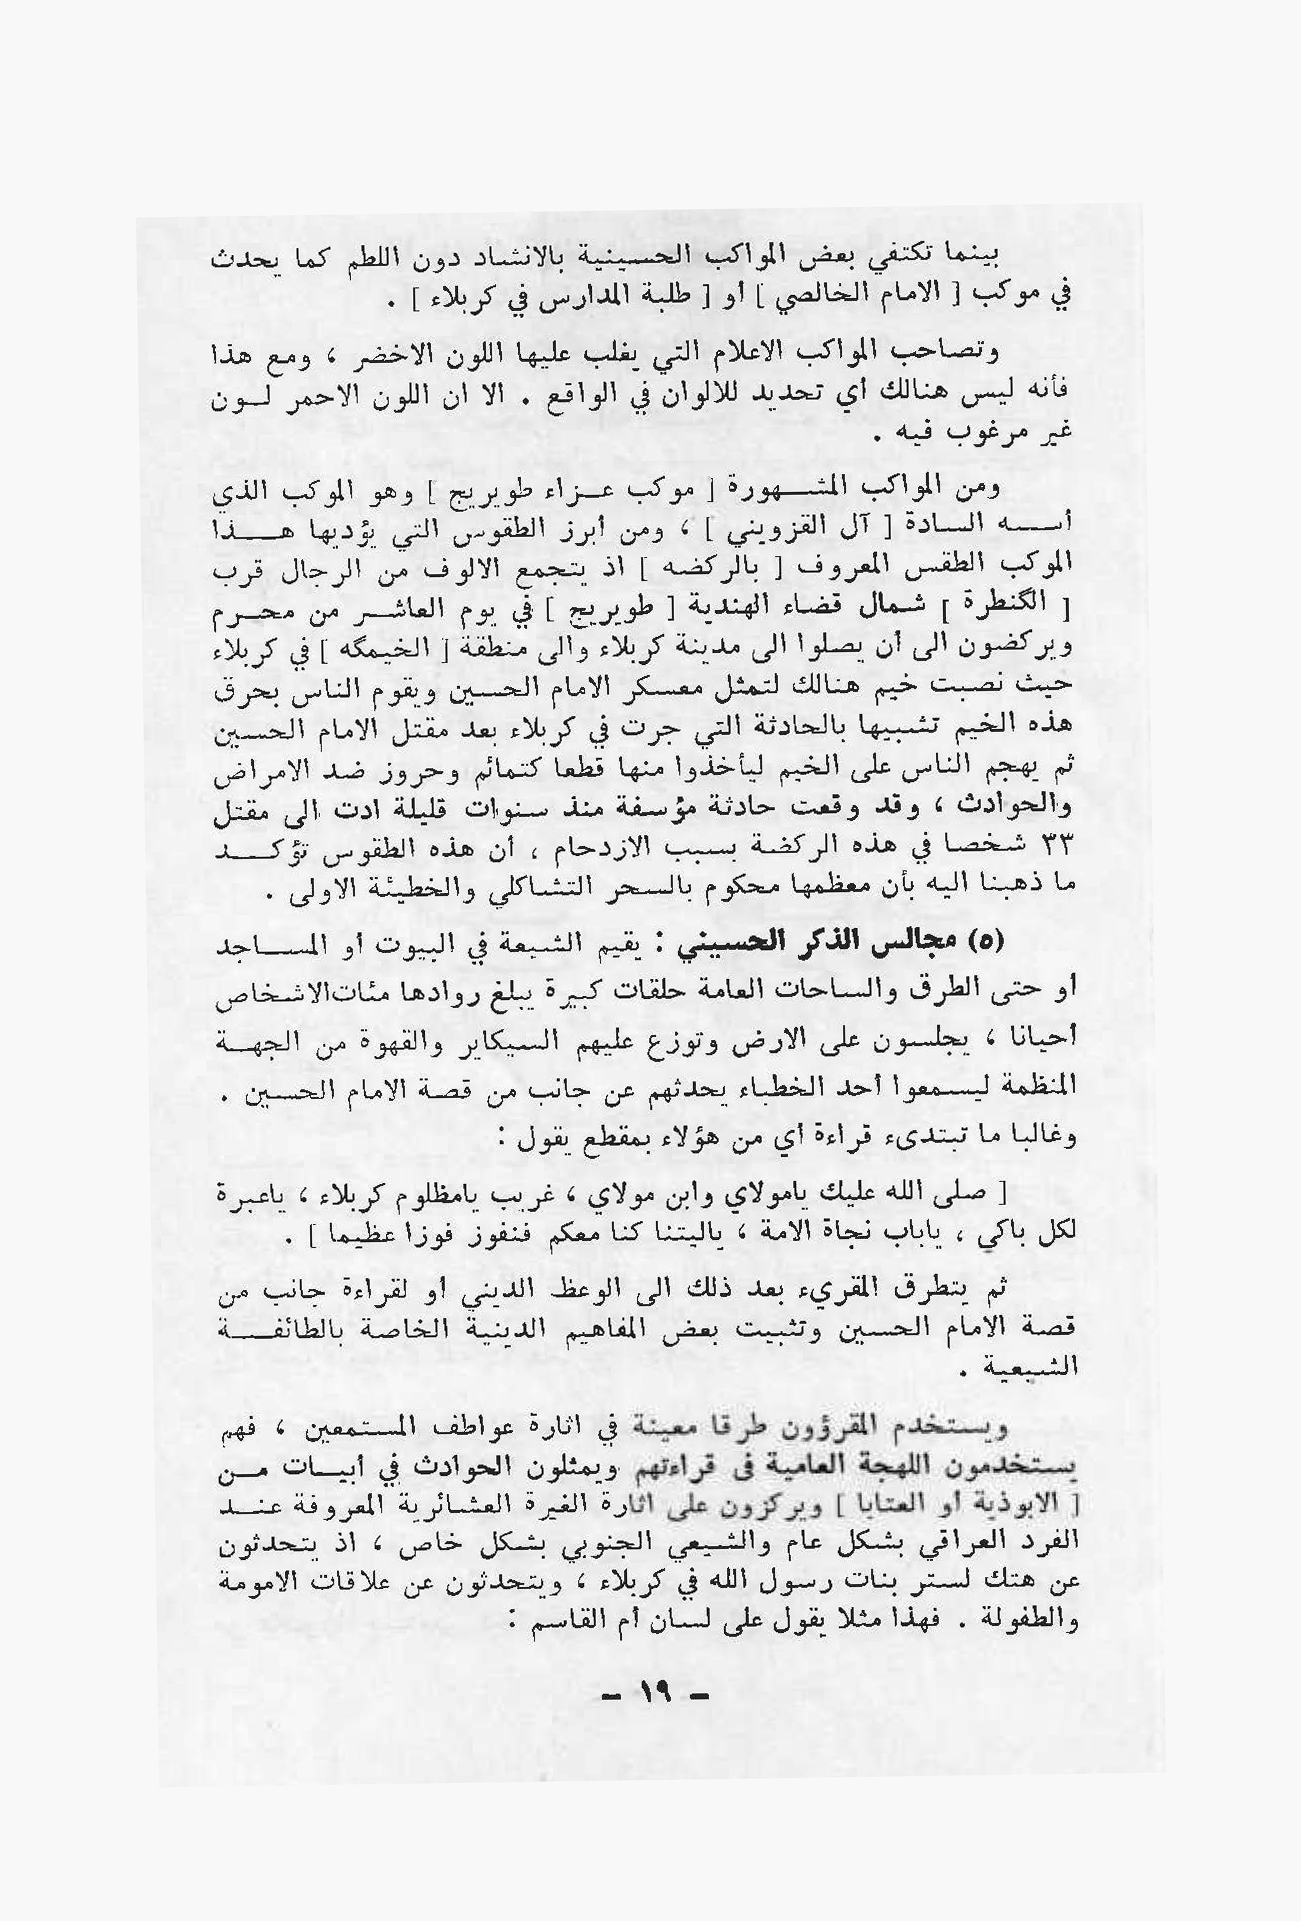 بينما تكتفي بعض المواكب الحسينية بالانشاد دون اللطم كما يحدث
في موكب [ الامام الخالصي ] أو [ طلبة المدارس في كربلاء ] .
وتصاحب المواكب الاعلام التي يغلب عليها اللون الاخضر ، ومع هذا
فأنه ليس هنالك أي تحديد للالوان في الواقع . الا ان اللون الاحمر لــون
غير مرغوب فيه .
ومن المواكب المشـــهورة [ موكب عــزاء طويريج ] وهو الموكب الذي
أســـه السادة [ آل القزويني ] ، ومن أبرز الطقوس التي يؤديها هـــذا
الموكب الطقس المعروف [ بالركضه ] اذ يتجمع الالوف من الرجال قرب
[ الگنطرة ] شمال قضاء الهندية [ طويريج ] في يوم العاشــر من محــرم
ويركضون الى أن يصلوا الى مدينة كربلاء والى منطقة [ الخيمگه ] في كربلاء
حيث نصبت خيم هنالك لتمثل معسكر الامام الحسين ويقوم الناس بحرق
هذه الخيم تشبيها بالحادثة التي جرت في كربلاء بعد مقتل الامام الحسين
ثم يهجم الناس على الخيم ليأخذوا منها قطعا كتمائم وحروز ضد الامراض
والحوادث ، وقد وقعت حادثة مؤسفة منذ سنوات قليلة ادت الى مقتل
٣٣ شخصا في هذه الركضة بسبب الازدحام ، أن هذه الطقوس تؤكـــد
ما ذهبنا اليه بأن معظمها محكوم بالسحر التشاكلي والخطيئة الاولى .
(٥) مجالس الذكر الحسيني : يقيم الشيعة في البيوت أو المســاجد
أو حتى الطرق والساحات العامة حلقات كبيرة يبلغ روادها مئات الاشخاص
أحيانا ، يجلسون على الارض وتوزع عليهم السيكاير والقهوة من الجهــة
المنظمة ليسمعوا أحد الخطباء يحدثهم عن جانب من قصة الامام الحسين .
وغالبا ما تبتدىء قراءة أي من هؤلاء بمقطع يقول :
[ صلى الله عليك يامولاي وابن مولاي ، غريب يامظلوم كربلاء ، ياعبرة
لكل باكي ، ياباب نجاة الامة ، ياليتنا كنا معكم فنفوز فوزا عظيما ] .
ثم يتطرق المقريء بعد ذلك الى الوعظ الديني أو لقراءة جانب من
قصة الامام الحسين وتثبيت بعض المفاهيم الدينية الخاصة بالطائفـــة
الشيعية .
ويستخدم المقرؤون طرقا معينة في اثارة عواطف المستمعين ، فهم
يستخدمون اللهجة العامية في قراءتهم ويمثلون الحوادث في أبيــات مــن
[ الابوذية أو العتابا ] ويركزون على اثارة الغيرة العشائرية المعروفة عنــد
الفرد العراقي بشكل عام والشيعي الجنوبي بشكل خاص ، اذ يتحدثون
عن هتك لستر بنات رسول الله في كربلاء ، ويتحدثون عن علاقات الامومة
والطفولة . فهذا مثلا يقول على لسان أم القاسم :
- ١٩ -